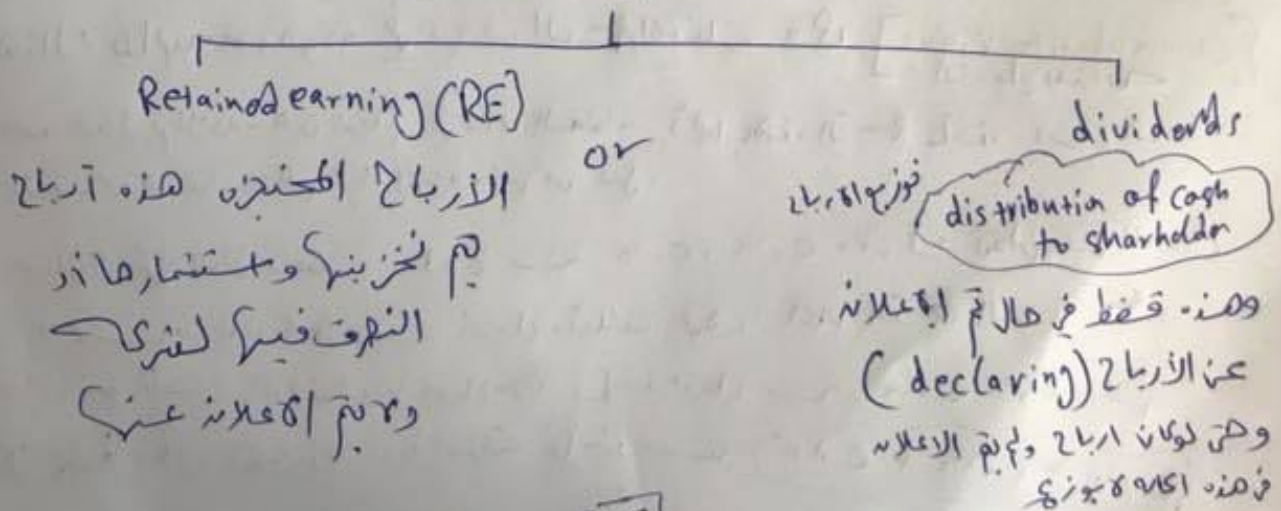 Retained earning (RE)
الأرباح المحتجزه هذه أرباح
يتم تخزينها واستثمارها أو
التصرف فيها
ولا يتم الاعلان عنها
or
dividends
توزيع الارباح
distribution of cash
to sharholder
وهذه فقط في حال تم الإعلان
عن الأرباح (declaring)
وحتى لو كان ارباح ولم يتم الاعلان
في هذه الحاله لا يوزع